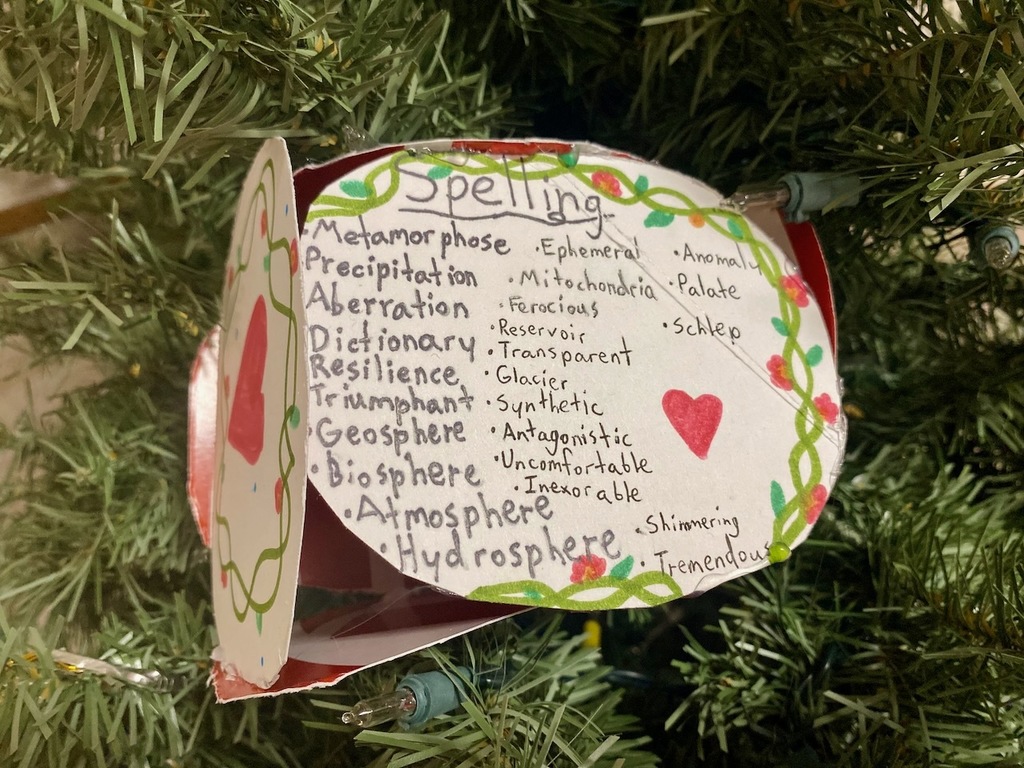 Spelling
·Metamorphose
Precipitation
Aberration
Dictionary
Resilience
Triumphant
·Geosphere
·Biosphere
·Atmosphere
·Hydrosphere
·Ephemeral
·Mitochondria
·Ferocious
·Reservoir
·Transparent
·Glacier
·Synthetic
·Antagonistic
·Uncomfortable
·Inexorable
·Anomaly
·Palate
·Schlep
·Shimmering
·Tremendous